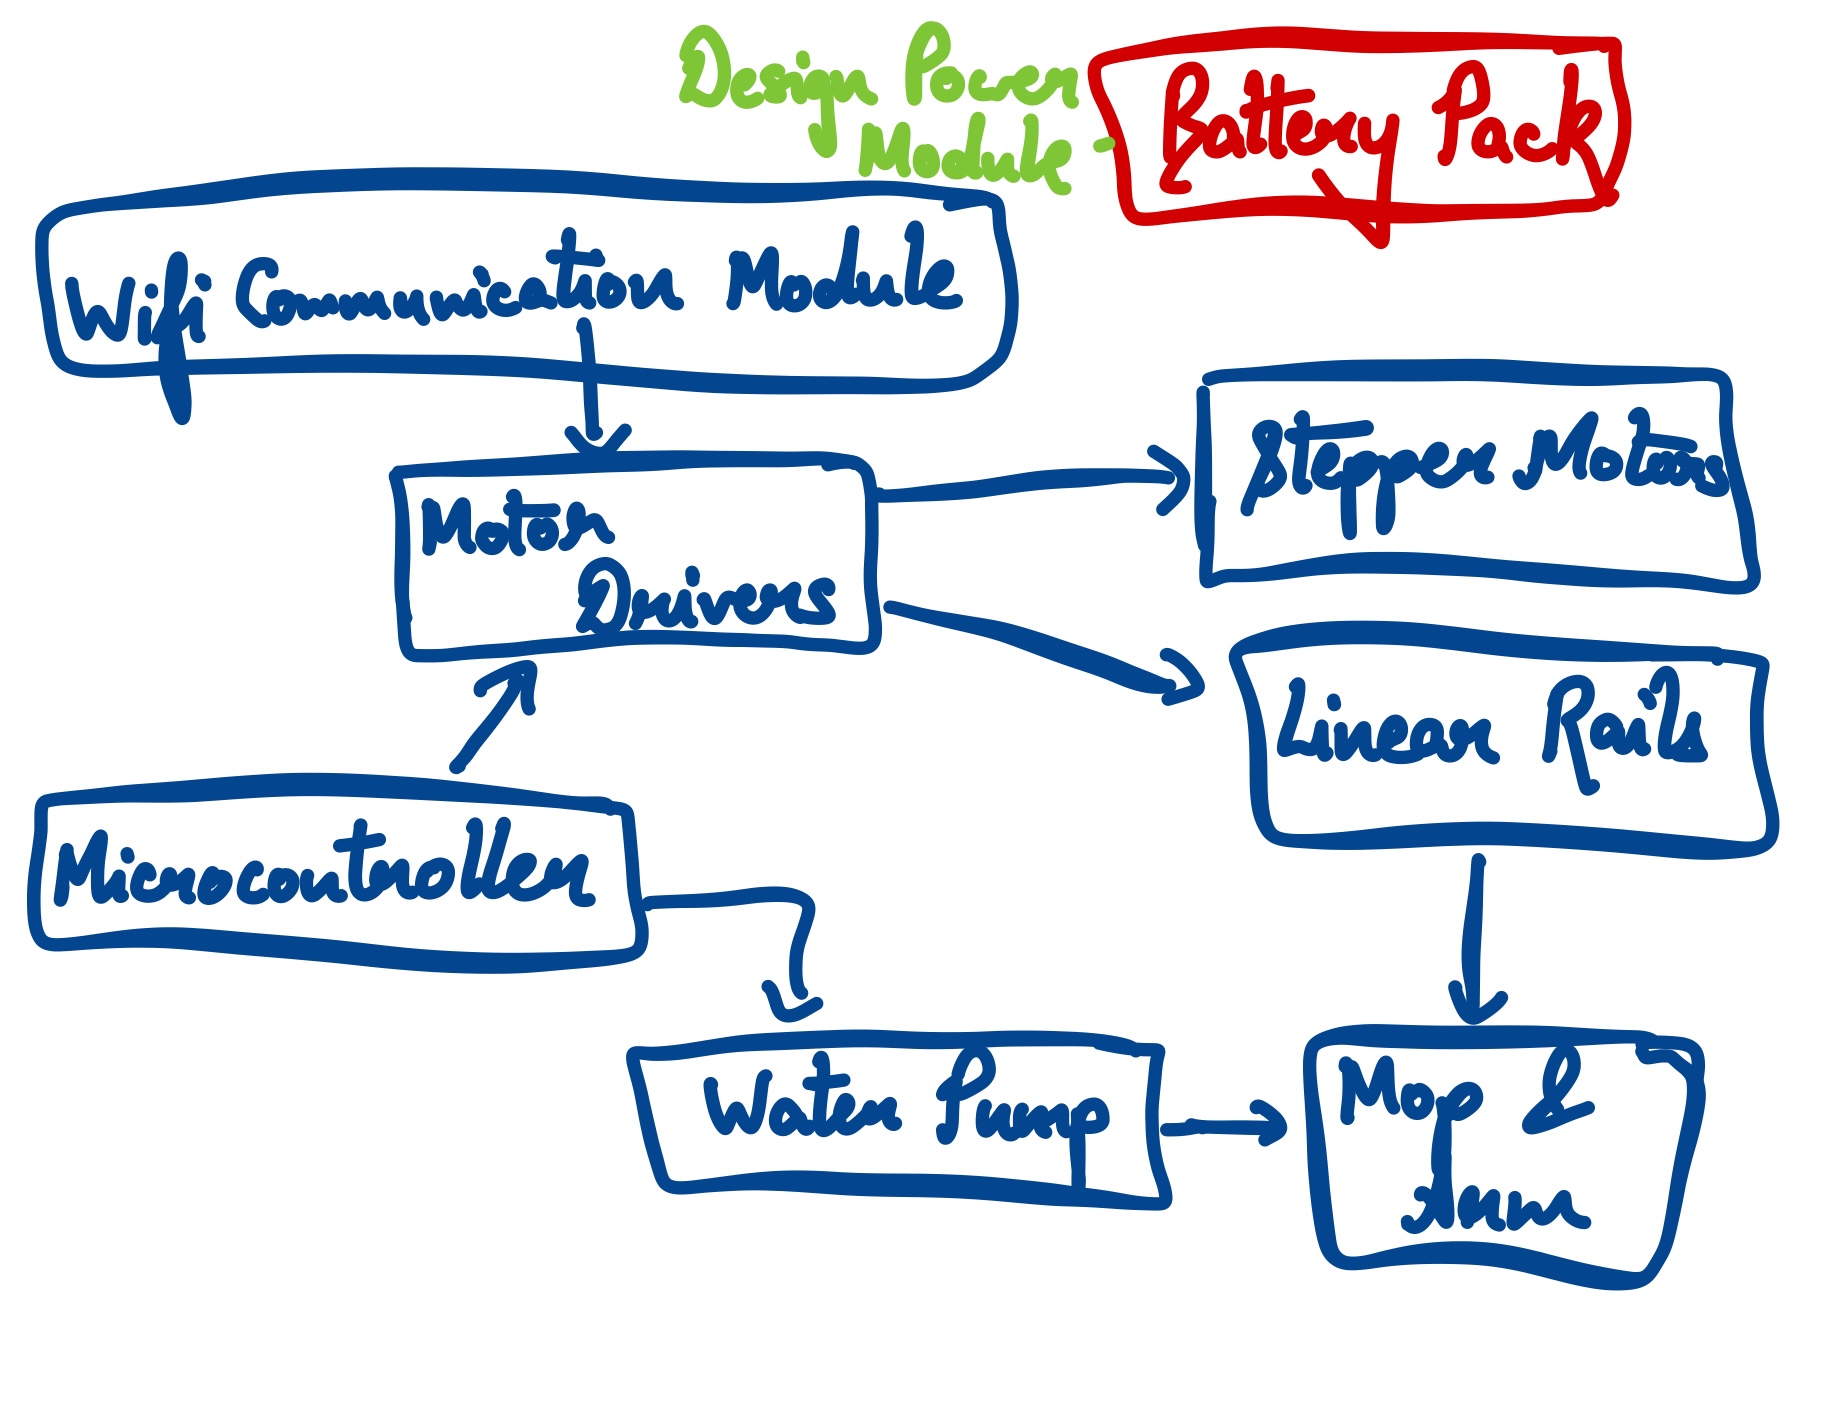 Design Power
Module -
Battery Pack
Wifi Communication Module
Motor
Drivers
Stepper Motors
Linear Rails
Microcontroller
Water Pump
Mop &
Arm